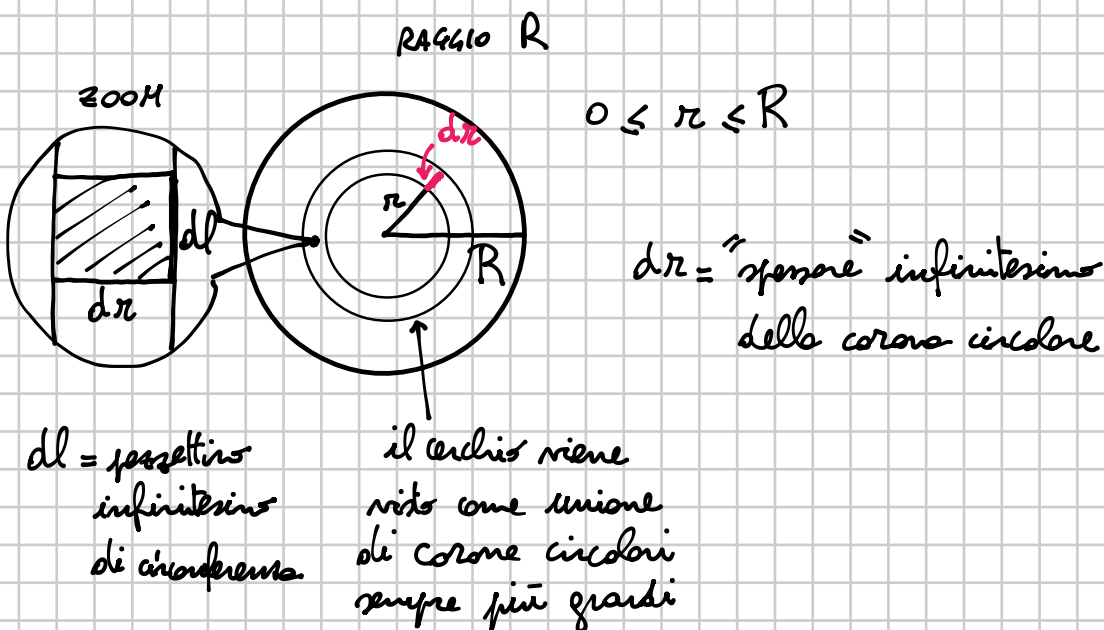 RAGGIO R
ZOOM
0 ≤ r ≤ R
dr
r
R
dl
dr
dr = "spessore" infinitesimo
della corona circolare
dl = pezzettino
infinitesimo
di circonferenza
il cerchio viene
visto come unione
di corone circolari
sempre più grandi